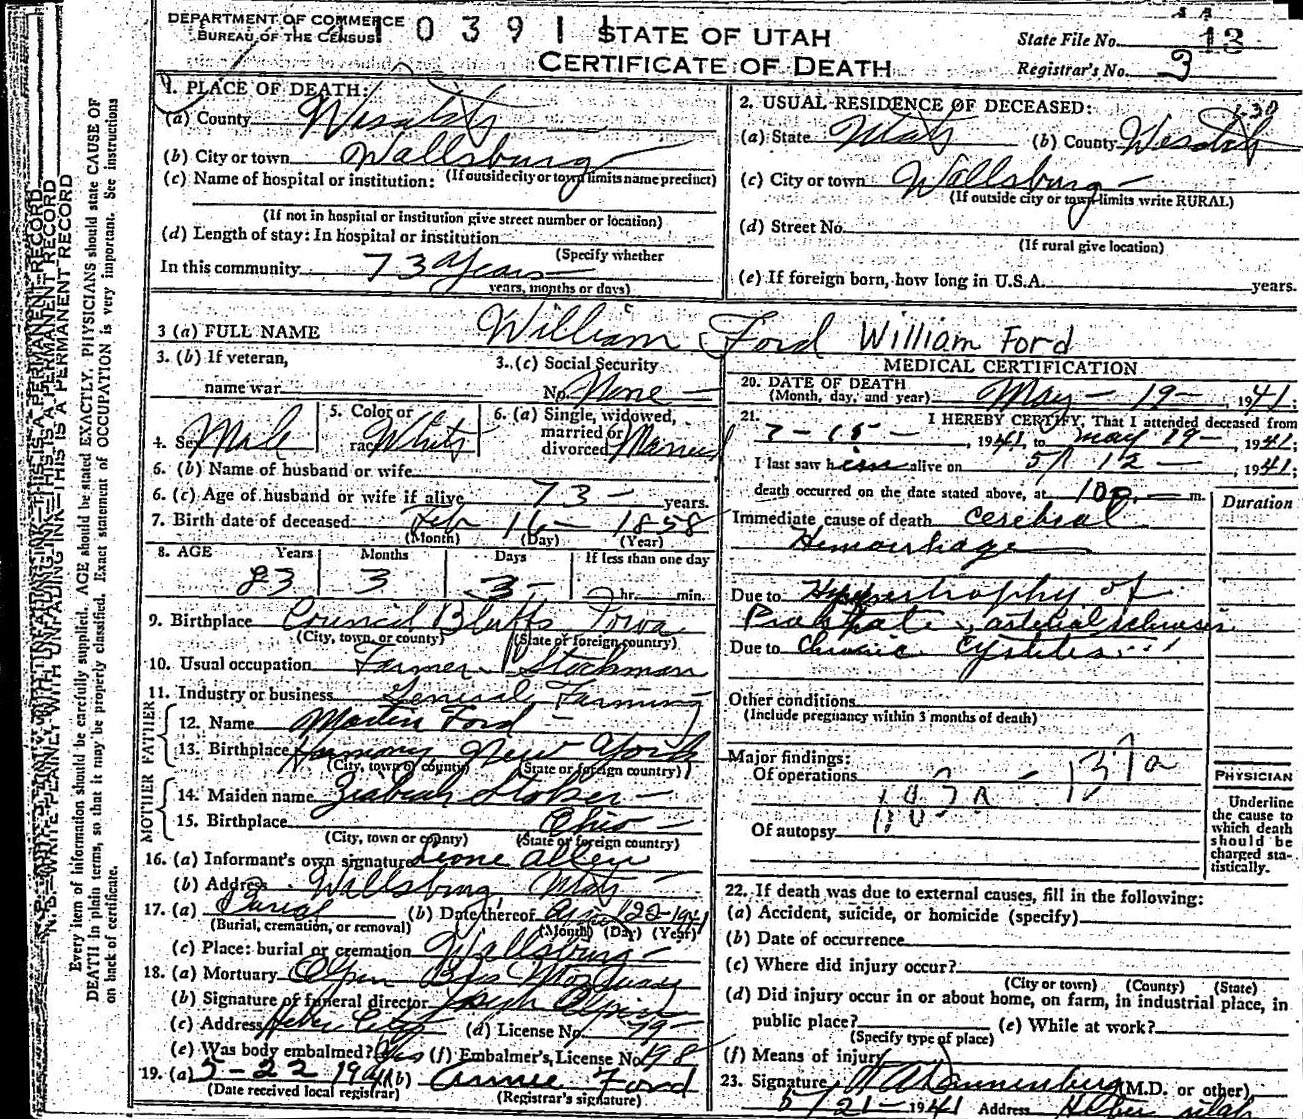 DEPARTMENT OF COMMERCE
BUREAU OF THE CENSUS
10391
STATE OF UTAH
CERTIFICATE OF DEATH
State File No. 13
Registrar's No. 3
N. B.—WRITE PLAINLY WITH UNFADING INK—THIS IS A PERMANENT RECORD
Every item of information should be carefully supplied. AGE should be stated EXACTLY. PHYSICIANS should state CAUSE OF
DEATH in plain terms, so that it may be properly classified. Exact statement of OCCUPATION is very important. See instructions
on back of certificate.
1. PLACE OF DEATH:
(a) County Wasatch
(b) City or town Wallsburg
(If outside city or town limits name precinct)
(c) Name of hospital or institution:
(If not in hospital or institution give street number or location)
(d) Length of stay: In hospital or institution
(Specify whether
In this community 73 years
years, months or days)
2. USUAL RESIDENCE OF DECEASED:
(a) State Utah (b) County Wasatch
(c) City or town Wallsburg
(If outside city or town limits write RURAL)
(d) Street No.
(If rural give location)
(e) If foreign born, how long in U.S.A. years.
3 (a) FULL NAME William Ford William Ford
3. (b) If veteran,
name war
3. (c) Social Security
No. None
4. Sex Male
5. Color or
race White
6. (a) Single, widowed,
married or
divorced Married
6. (b) Name of husband or wife
6. (c) Age of husband or wife if alive 73 years.
7. Birth date of deceased Feb 16 1858
(Month) (Day) (Year)
8. AGE Years Months Days If less than one day
83 3 3 hr. min.
9. Birthplace Council Bluffs Iowa
(City, town, or county) (State or foreign country)
10. Usual occupation Farmer Stockman
11. Industry or business General Farming
FATHER
12. Name Martin Ford
13. Birthplace New York
(City, town or county) (State or foreign country)
MOTHER
14. Maiden name Stoker
15. Birthplace Ohio
(City, town or county) (State or foreign country)
16. (a) Informant's own signature Leone Allen
(b) Address Wallsburg, Utah
17. (a) Burial (b) Date thereof 1941
(Burial, cremation, or removal) (Month) (Day) (Year)
(c) Place: burial or cremation Wallsburg
18. (a) Mortuary Olpin Bros Mortuary
(b) Signature of funeral director Olpin
(c) Address Heber City (d) License No. 79
(e) Was body embalmed? Yes (f) Embalmer's License No. 198
19. (a) 5-22 1941 (b) Annie Ford
(Date received local registrar) (Registrar's signature)
MEDICAL CERTIFICATION
20. DATE OF DEATH
(Month, day, and year) May 19 1941;
21. I HEREBY CERTIFY, That I attended deceased from
1941, to May 19 1941;
I last saw him alive on 5/12 1941;
death occurred on the date stated above, at m.
Duration
Immediate cause of death Cerebral
Hemorrhage
Due to Hypertrophy of
Prostate, arterial sclerosis
Due to Chronic Cystitis
Other conditions
(Include pregnancy within 3 months of death)
Major findings:
Of operations
137a
Of autopsy
PHYSICIAN
Underline
the cause to
which death
should be
charged sta-
tistically.
22. If death was due to external causes, fill in the following:
(a) Accident, suicide, or homicide (specify)
(b) Date of occurrence
(c) Where did injury occur?
(City or town) (County) (State)
(d) Did injury occur in or about home, on farm, in industrial place, in
public place? (e) While at work?
(Specify type of place)
(f) Means of injury
23. Signature (M.D. or other)
5/21 1941 Address Heber Utah